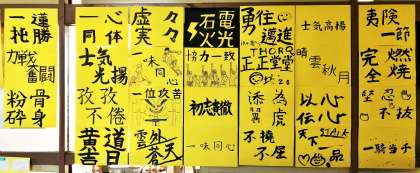 一蓮
托勝
力戦
奮闘
粉骨
砕身
一心
同体
士気
光揚
孜孜
不倦
黄道
吉日
虚々
実々
一味同心
一位攻苦
雲外
蒼天
電光
石火
協力一致
初志貫徹
一味同心
勇往
邁進
正正堂堂
為虎
添翼
不撓
不屈
士気高揚
晴雲秋月
以心
伝心
天下一品
夷険
一節
完全
燃焼
堅忍
不抜
一騎当千